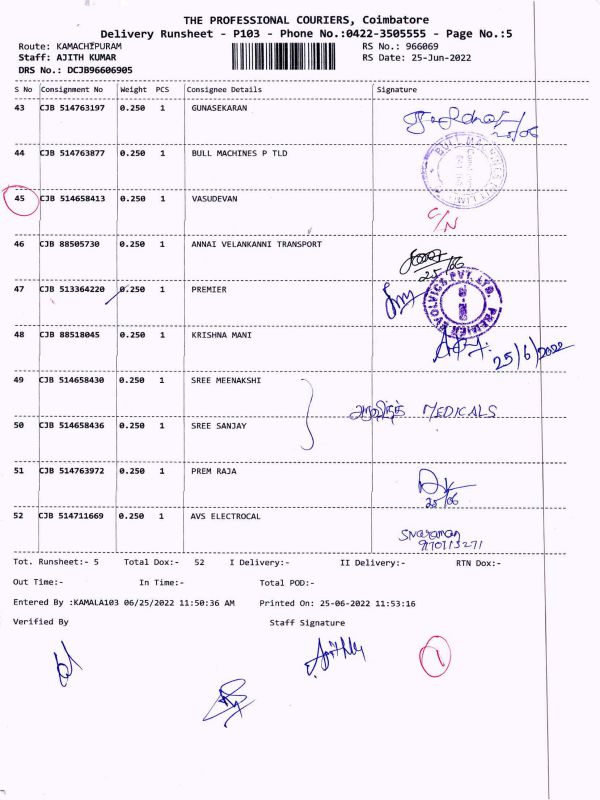 THE PROFESSIONAL COURIERS, Coimbatore
Delivery Runsheet - P103 - Phone No.:0422-3505555 - Page No.:5
Route: KAMACHIPURAM RS No.: 966069
Staff: AJITH KUMAR RS Date: 25-Jun-2022
DRS No.: DCJB96606905
S No Consignment No Weight PCS Consignee Details Signature
43 CJB 514763197 0.250 1 GUNASEKARAN
25/06
44 CJB 514763877 0.250 1 BULL MACHINES P TLD
45 CJB 514658413 0.250 1 VASUDEVAN
C/N
46 CJB 88505730 0.250 1 ANNAI VELANKANNI TRANSPORT
25/06
47 CJB 513364220 0.250 1 PREMIER
PREMIER EVOLVICS PVT. LTD
48 CJB 88518045 0.250 1 KRISHNA MANI
25/6/2022
49 CJB 514658430 0.250 1 SREE MEENAKSHI
MEDICALS
50 CJB 514658436 0.250 1 SREE SANJAY
51 CJB 514763972 0.250 1 PREM RAJA
25/06
52 CJB 514711669 0.250 1 AVS ELECTROCAL
Sivaraman
Tot. Runsheet:- 5 Total Dox:- 52 I Delivery:- II Delivery:- RTN Dox:-
Out Time:- In Time:- Total POD:-
Entered By :KAMALA103 06/25/2022 11:50:36 AM Printed On: 25-06-2022 11:53:16
Verified By Staff Signature
1